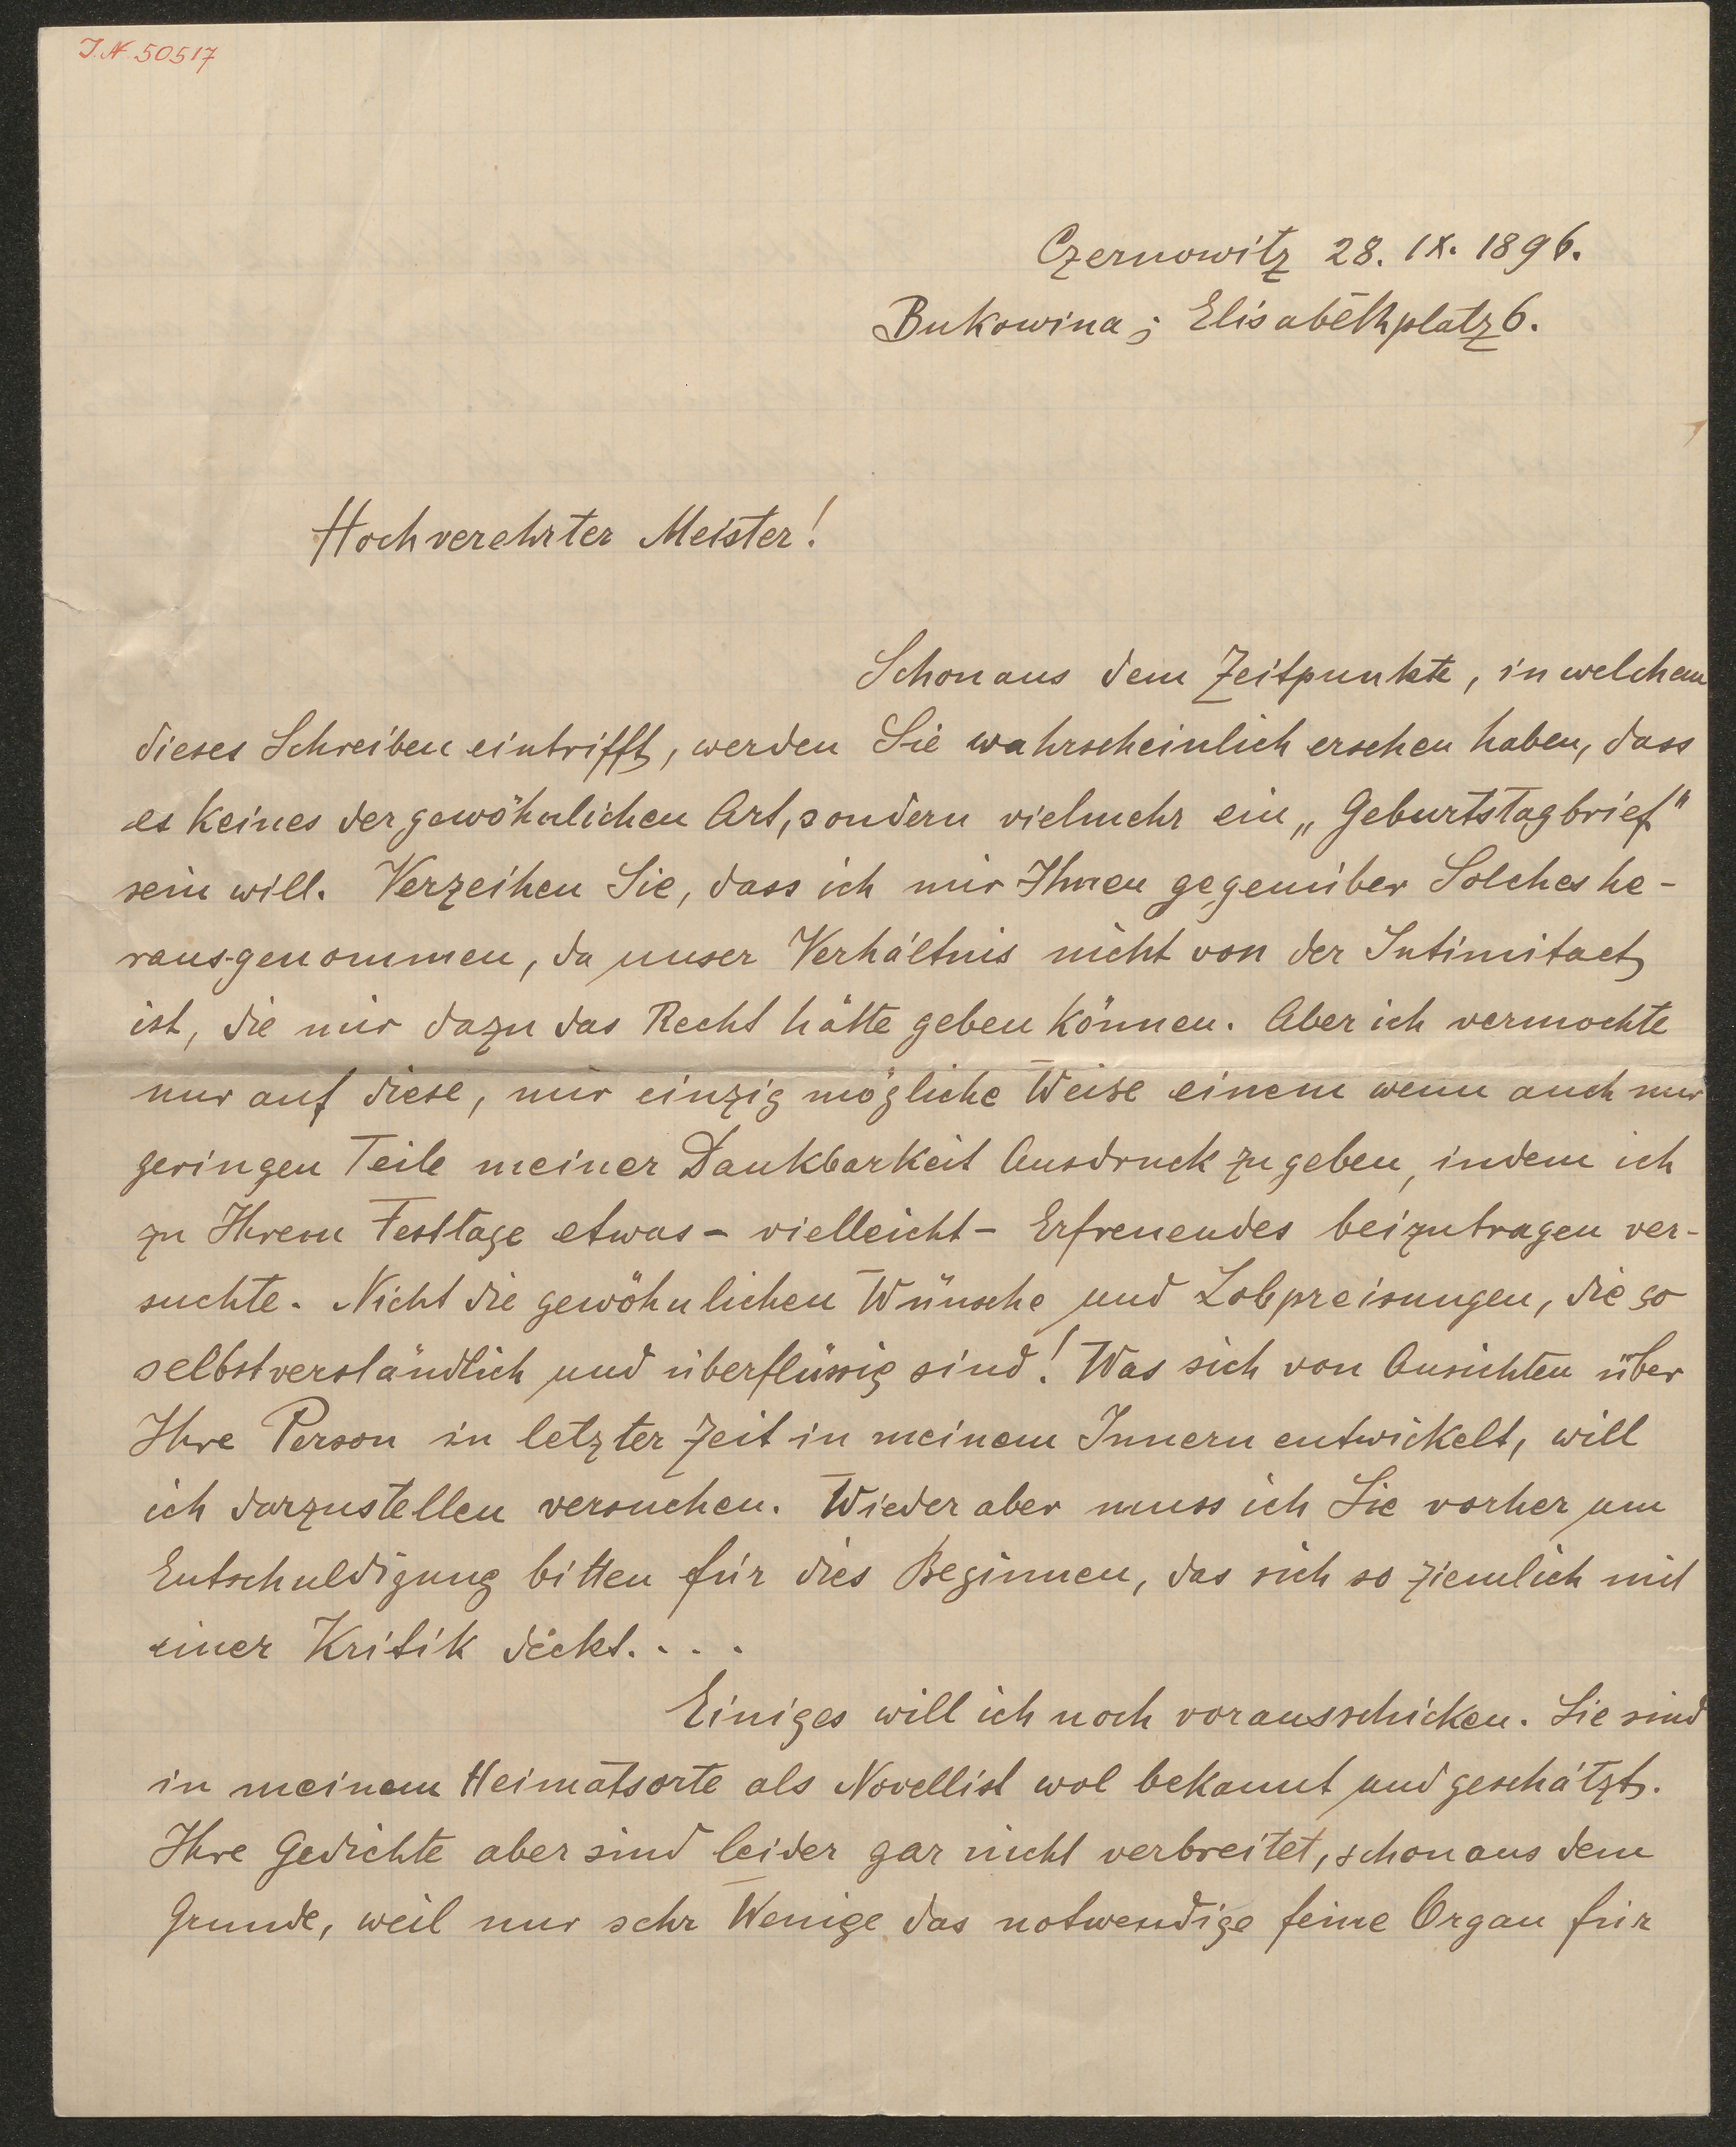 J.N. 50517
Czernowitz 28. IX. 1896.
Bukowina; Elisabethplatz 6.
Hochverehrter Meister!
Schon aus dem Zeitpunkte, in welchem
dieses Schreiben eintrifft, werden Sie wahrscheinlich ersehen haben, dass
es keines der gewöhnlichen Art, sondern vielmehr ein „Geburtstagbrief"
sein will. Verzeihen Sie, dass ich mir Ihnen gegenüber Solches he-
rausgenommen, da unser Verhältnis nicht von der Intimitaet
ist, die mir dazu das Recht hätte geben können. Aber ich vermochte
nur auf diese, mir einzig mögliche Weise einem wenn auch nur
geringen Teile meiner Dankbarkeit Ausdruck zu geben, indem ich
zu Ihrem Festtage etwas - vielleicht - Erfreuendes beizutragen ver-
suchte. Nicht die gewöhnlichen Wünsche und Lobpreisungen, die so
selbstverständlich und überflüssig sind! Was sich von Ansichten über
Ihre Person in letzter Zeit in meinem Innern entwickelt, will
ich darzustellen versuchen. Wieder aber muss ich Sie vorher um
Entschuldigung bitten für dies Beginnen, das sich so ziemlich mit
einer Kritik deckt. . . .
Einiges will ich noch vorausschicken. Sie sind
in meinem Heimatsorte als Novellist wol bekannt und geschätzt.
Ihre Gedichte aber sind leider gar nicht verbreitet, schon aus dem
Grunde, weil nur sehr Wenige das notwendige feine Organ für